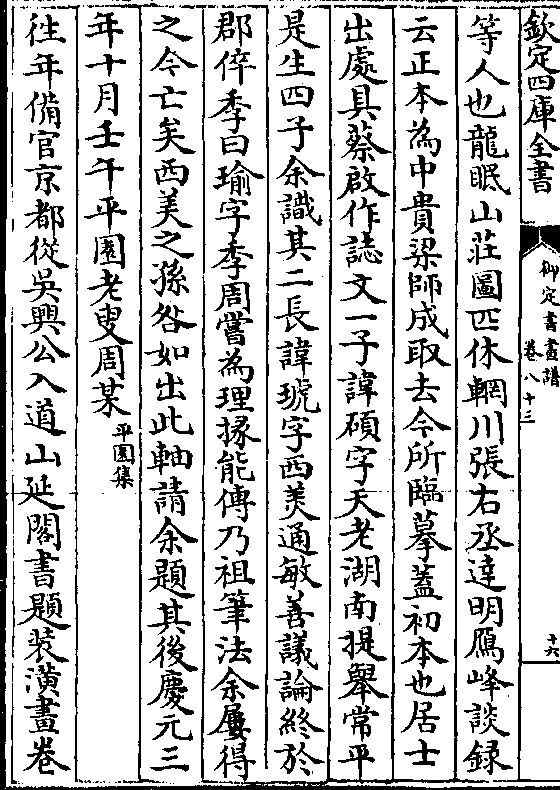 欽定四庫全書
御定書畫譜
卷八十三
十六
等人也龍眠山莊圖匹休輞川張右丞達明鴈峰談録
云正本為中貴梁師成取去今所臨摹蓋初本也居士
出處具蔡啟作誌文一子諱碩字天老湖南提舉常平
是生四子余識其二長諱琥字西美通敏善議論終於
郡倅季曰瑜字季周嘗為理掾能傳乃祖筆法余屢得
之今亡矣西美之孫咎如出此軸請余題其後慶元三
年十月壬午平園老叟周某平園集
往年備官京都從吳興公入道山延閣書題裝潢畫卷